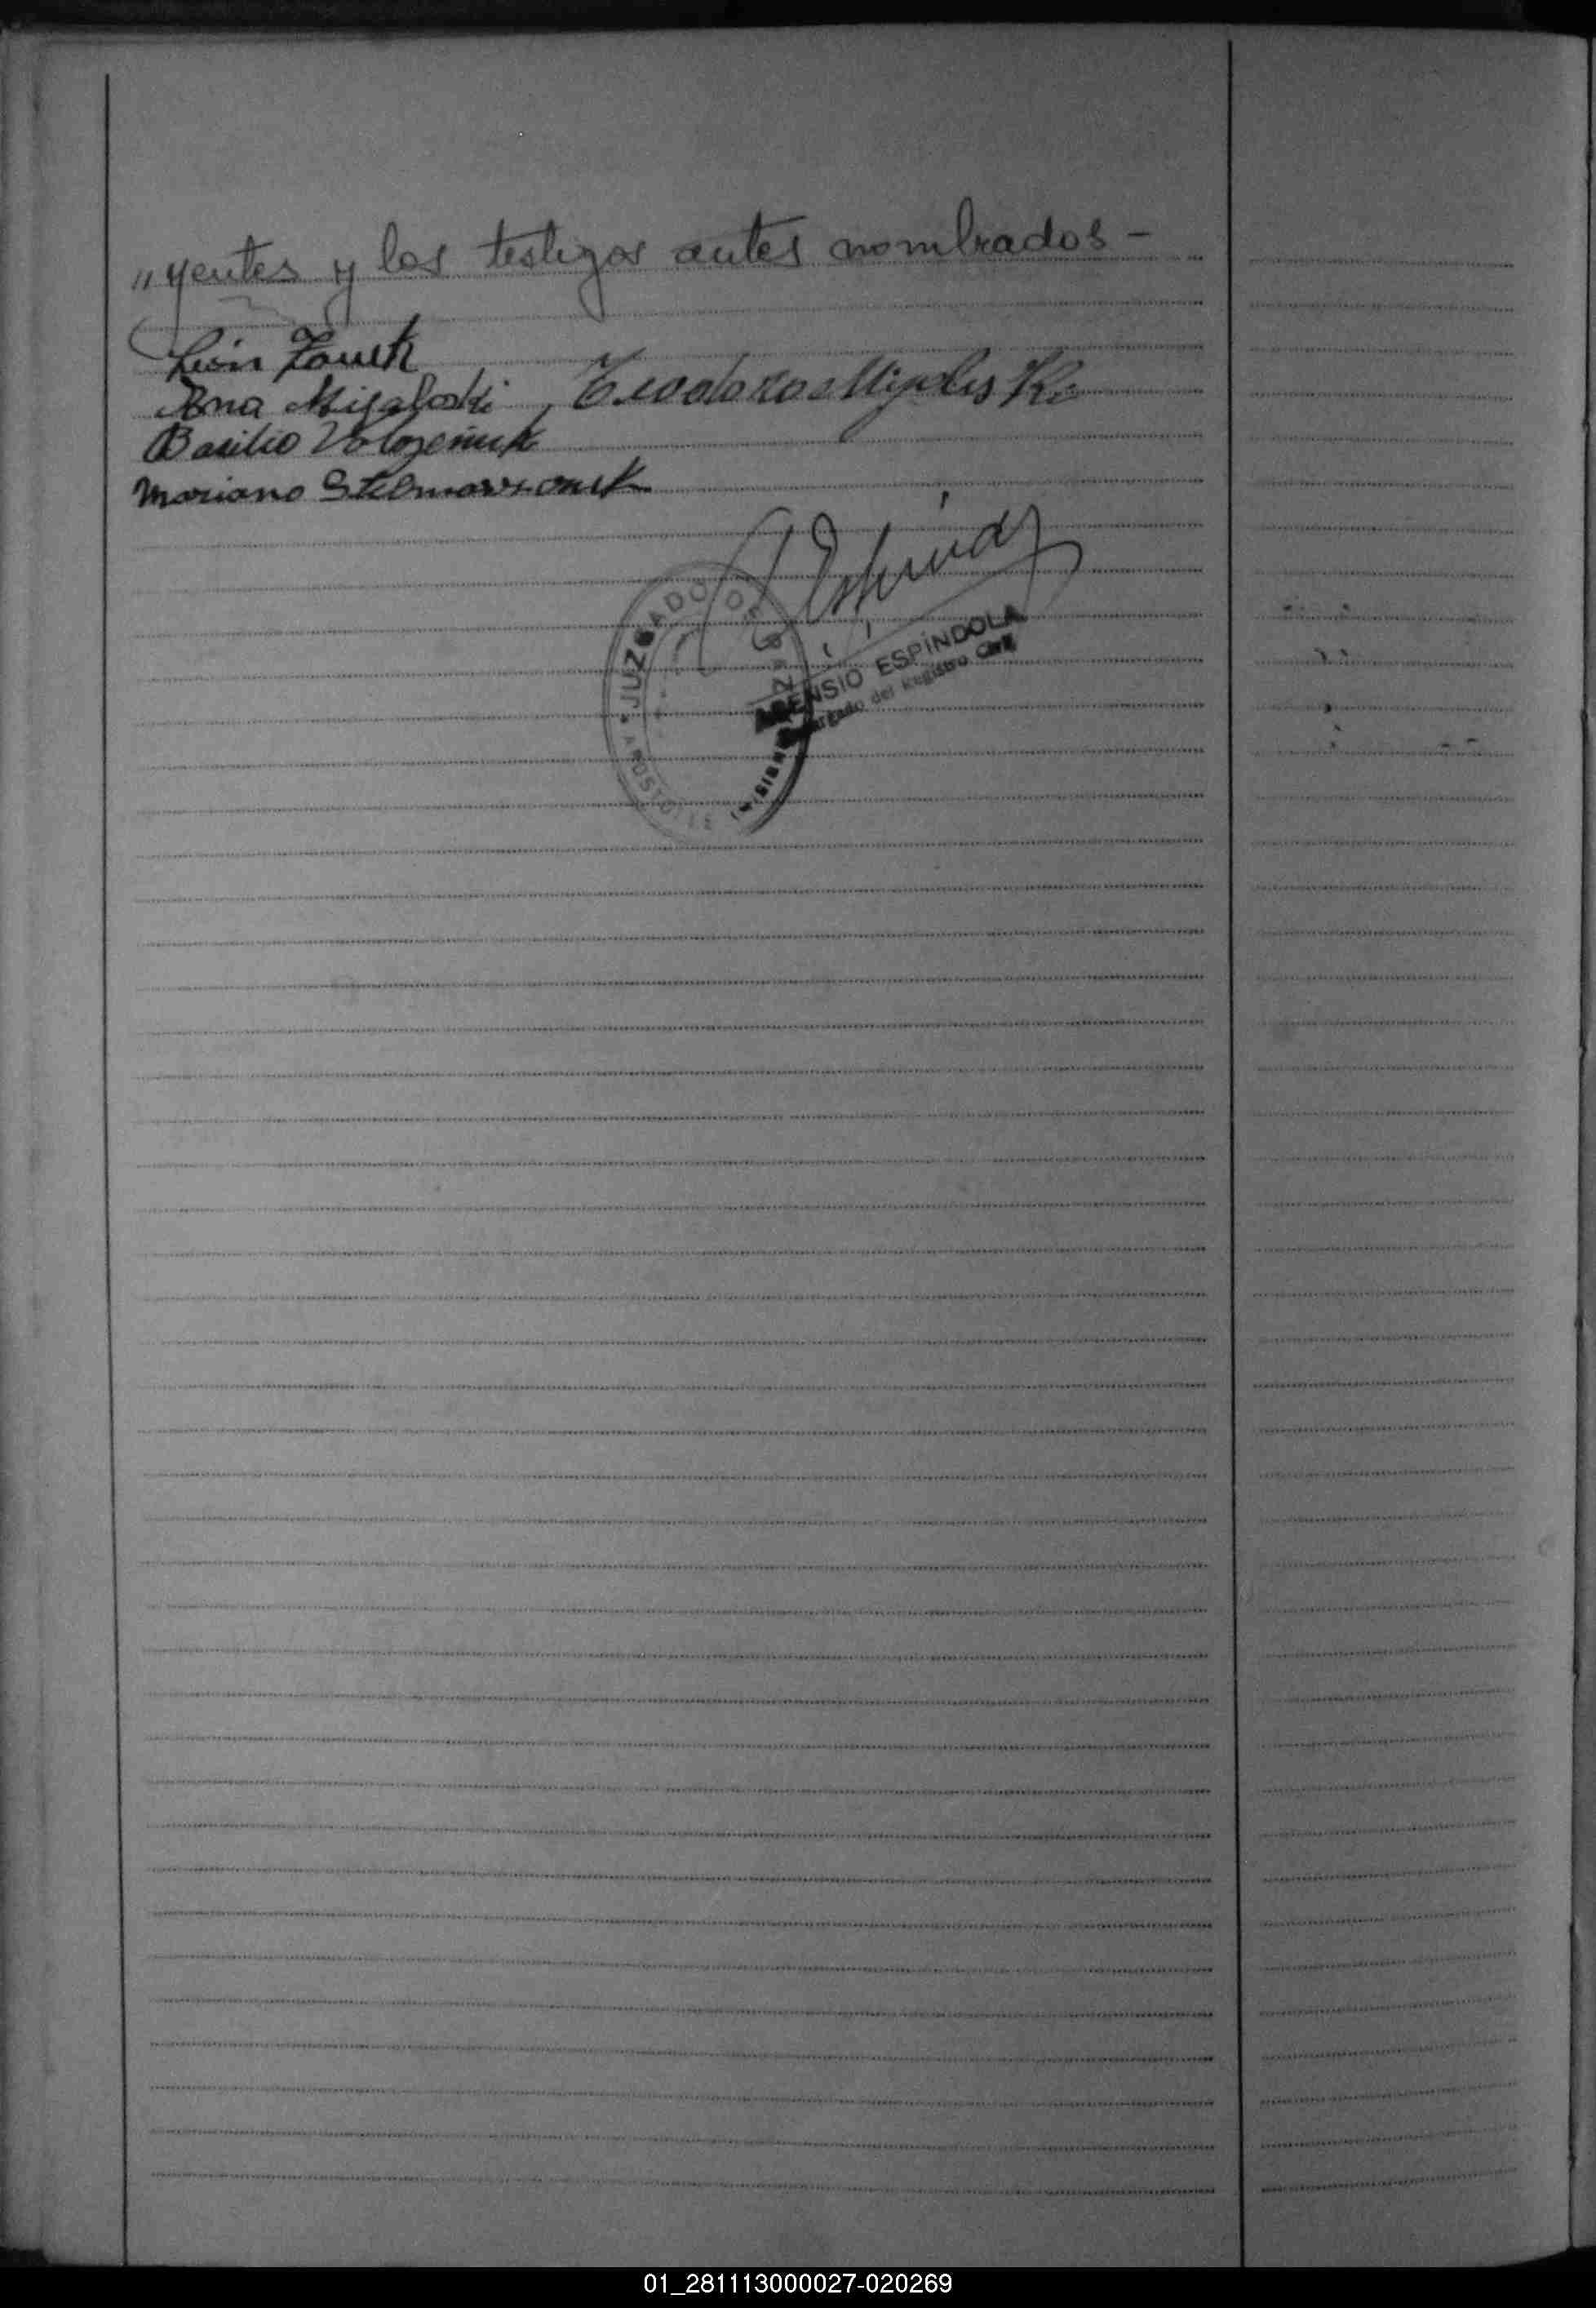 "yentes y los testigos antes nombrados -
León Zauck
Ana Migaloski Teodoro Migaloski
Basilio
Mariano
Espíndola
JUZGADO DE PAZ
APOSTOLES MISIONES
ASENSIO ESPÍNDOLA
Encargado del Registro Civil
01_281113000027-020269